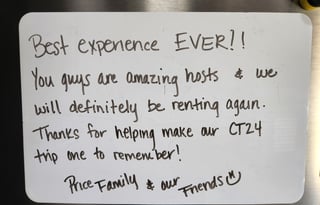 Best experience EVER!!
You guys are amazing hosts & we
will definitely be renting again.
Thanks for helping make our CT24
trip one to remember!
Price Family & our Friends